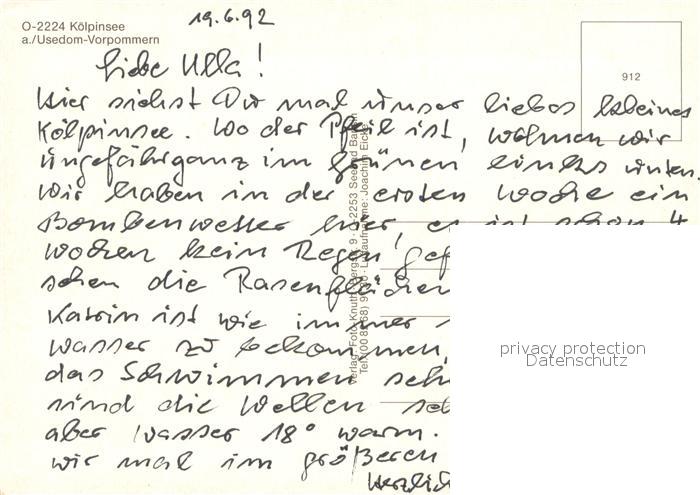 O-2224 Kölpinsee
a./Usedom-Vorpommern
19.6.92
912
Liebe Ulla!
Hier siehst Du mal unser liebes kleines
Kölpinsee. Wo der Pfeil ist, wohnen wir
ungefähr ganz im Grünen, links unten.
Wir haben in der ersten Woche ein
Bombenwetter hier, es ist schon 4
Wochen kein Regen gef
sehen die Rasenflächen
Katrin ist wie immer
Wasser zu bekommen,
das Schwimmen seh
sind die Wellen
aber Wasser 18° warm.
wir mal im größeren
Herzlich
Verlag: Foto Knuth
Luftaufnahme: Joachim
privacy protection
Datenschutz